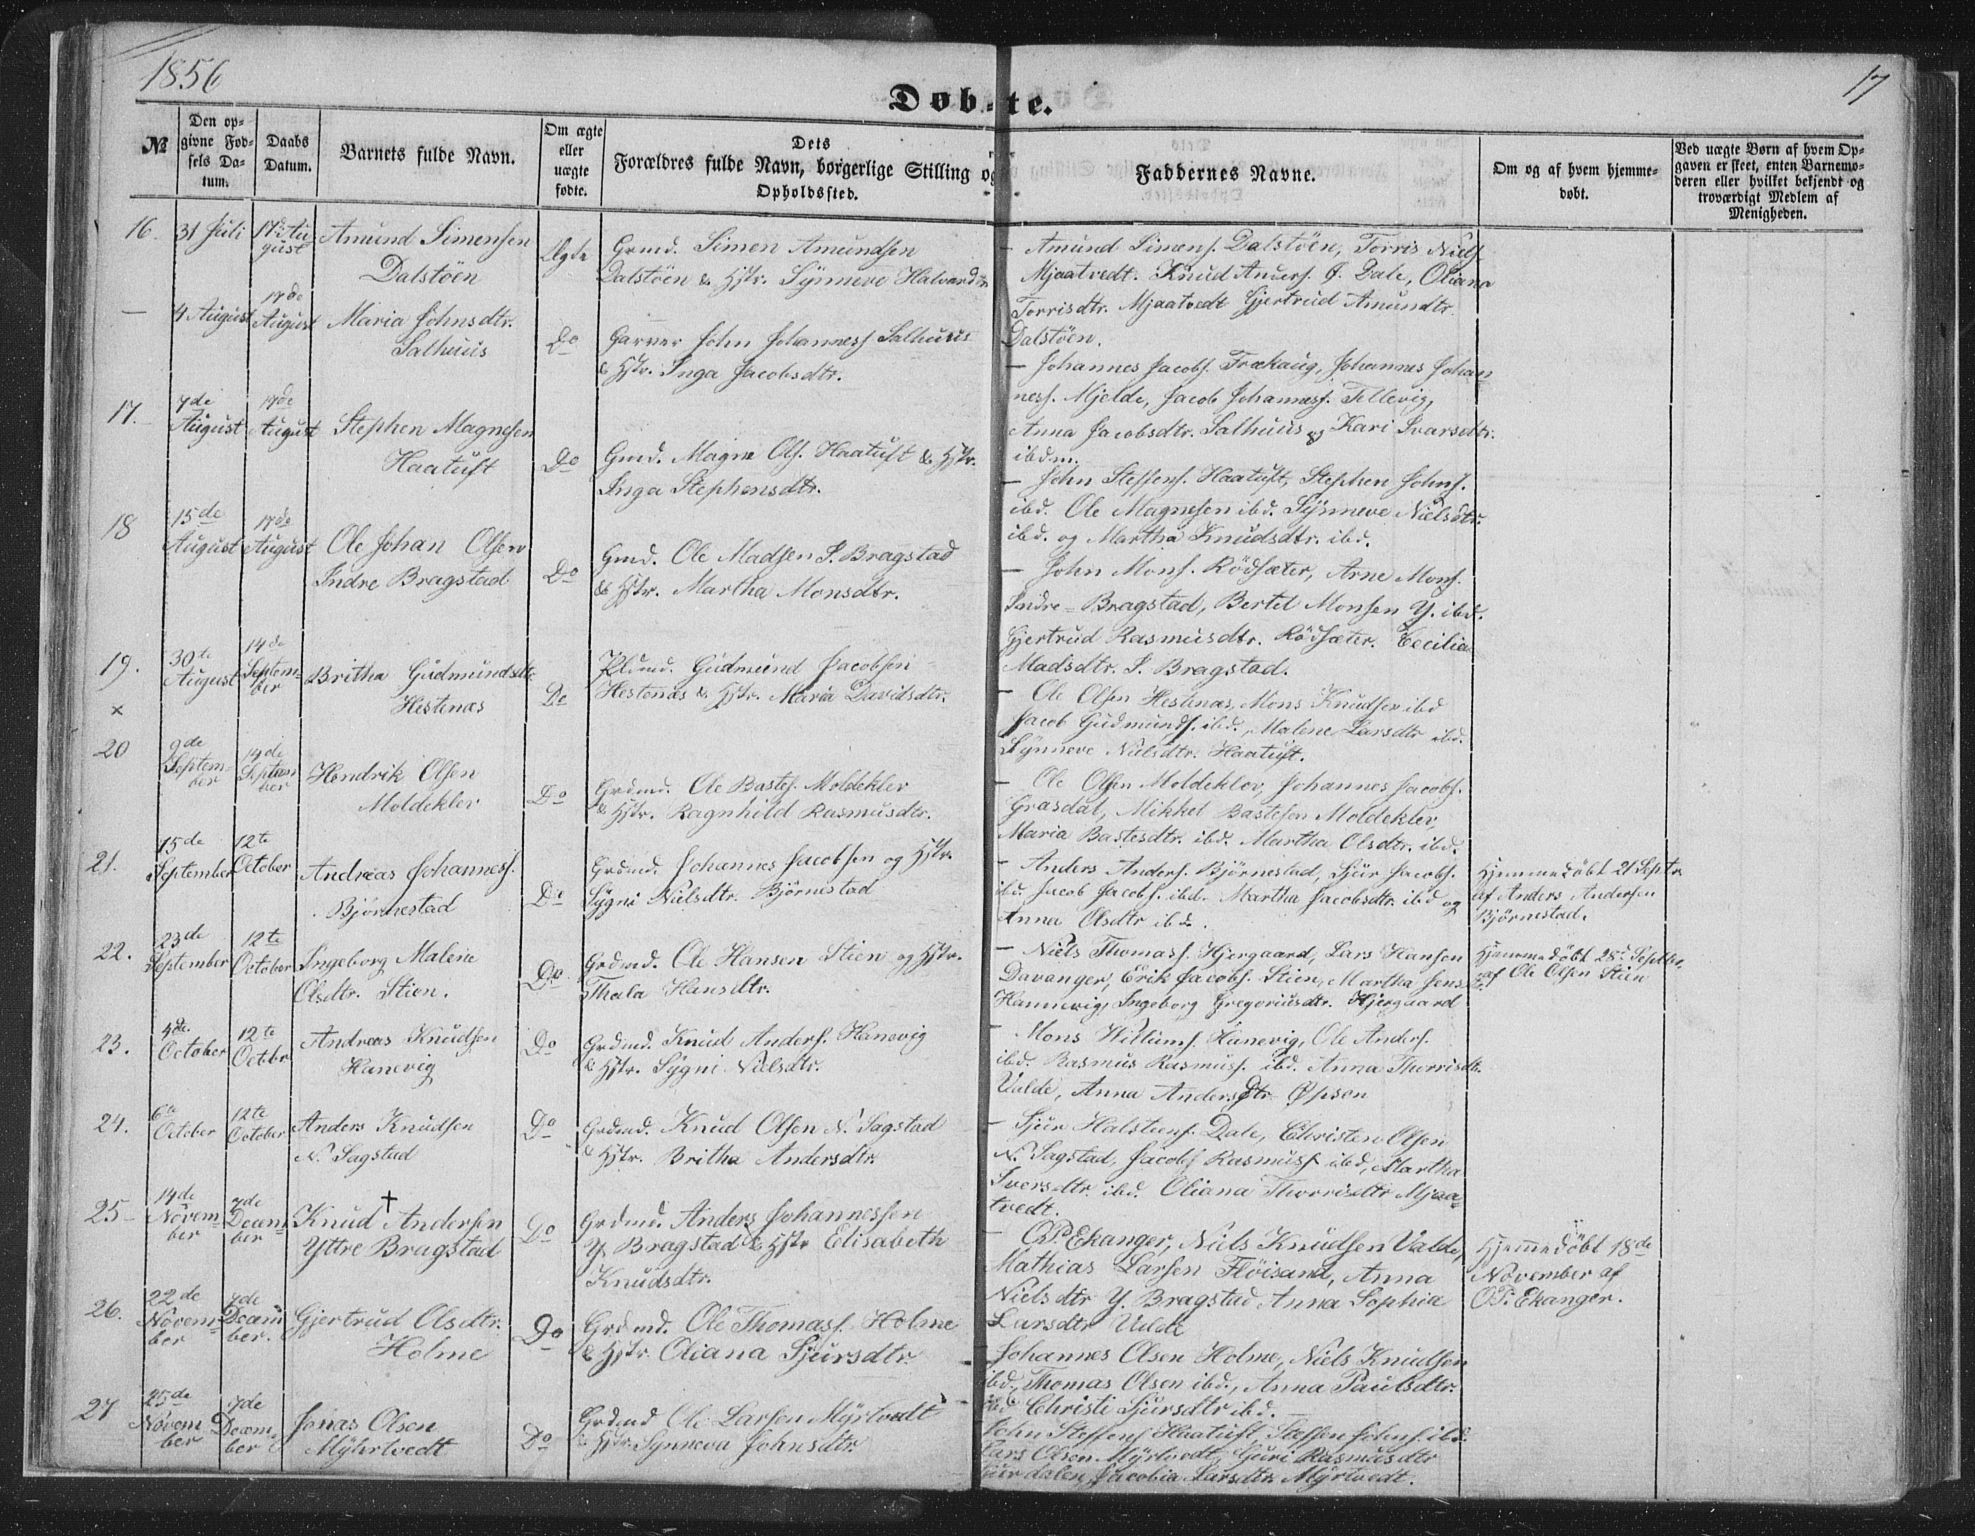 1856
17
Döbte.
№
Den op-
givne Fød-
sels Da-
tum.
Daabs
Datum.
Barnets fulde Navn.
Om ægte
eller
uægte
fødte.
Dets
Forældres fulde Navn, borgerlige Stilling og
Opholdssted.
Faddernes Navne.
Om og af hvem hjemme-
døbt.
Ved uægte Børn af hvem Op-
gaven er skeet, enten Barnemo-
deren eller hvilket bekjendt og
troværdigt Medlem af
Menigheden.
16.
31 Juli
17de Au-
gust
Amund Simensen
Dalstöen
Ægte
Grmd. Simen Amundsen
Dalstöen & Hstr. Synneve Halvard
— Amund Simens. Dalstöen, Torris Niels.
Mjaatvedt. Knud Anders. Ø. Dale, Oliana
Torrisdtr. Mjaatvedt Gjertrud Amundtr.
Dalstöen.
—
4 August
17de
August
Maria Johnsdtr.
Salhuus
Do
Garver John Johanness Salhuus
& Hstr. Inga Jacobsdtr.
— Johannes Jacobs. Frækaug, Johannes Johan-
ness. Mjelde, Jacob Johanness. Tellevig,
Anna Jacobsdtr. Salhuus og Kari Ivarsdtr.
ibdm.
17.
7de
August
17de
August
Stephen Magnesen
Haatuft
Do
Gmd. Magne Ols. Haatuft & Hstr.
Inga Stephensdtr.
— John Steffens. Haatuft, Stephen Johns.
ibd. Ole Magnesen ibd. Synneve Nielsdtr.
ibd. og Martha Knudsdtr. ibd.
18
15de
August
17de
August
Ole Johan Olsen
Indre Bragstad
Do
Gmd. Ole Madsen I. Bragstad
& Hstr. Martha Monsdtr.
— John Mons. Rödsæter, Arne Mons.
Indre-Bragstad, Bertel Monsen Y. ibd.
Gjertrud Rasmusdtr. Rödsæter. Cecilia
Madsdtr. I. Bragstad.
19.
×
30te
August
14de
Septem-
ber
Britha Gudmundsdtr
Hestenæs
Do
Gudmund Jacobsen
Hestenæs & Hstr. Maria Davidsdtr.
— Ole Olsen Hestenæs, Mons Knudsen ibd
Jacob Gudmunds. ibd., Malene Larsdtr ibd.
Synneve Nielsdtr. Haatuft.
20
9de
Septem-
ber
14de
Septem
ber
Hendrik Olsen
Moldeklev
Do
Grdmd. Ole Bastes. Moldeklev
& Hstr. Ragnhild Rasmusdtr.
— Ole Olsen Moldeklev, Johannes Jacobs.
Grasdal, Mikkel Bastesen Moldeklev,
Maria Bastesdtr. ibd. Martha Olsdtr. ibd.
21.
15de
September
12te
October
Andreas Johanness.
Björnestad
Do
Grdmd. Johannes Jacobsen og Hstr.
Sygni Nielsdtr. Björnestad
— Anders Anders. Björnestad, Sjur Jacobs.
ibd. Jacob Jacobs. ibd. Martha Jacobsdtr. ibd og
Anna Olsdtr ibd.
Hjemmedöbt 21 Septr.
af Anders Andersen
Björnestad.
22.
23de
September
12te
October
Ingeborg Malene
Olsdtr. Stien.
Do
Grdmd. Ole Hansen Stien og Hstr.
Thala Hansdtr.
— Niels Thomass. Hjergaard, Lars Hansen
Davanger, Erik Jacobs. Stien, Martha Jensdtr.
Hannevig, Ingeborg Gregoriusdtr. Hjergaard
Hjemmedöbt 28de Septbr.
af Ole Olsen Stien
23.
4de
October
12te
Octbr
Andreas Knudsen
Hanevig
Do
Grdmd. Knud Anders. Hanevig
& Hstr. Sygni Nielsdtr.
— Mons Willums. Hanevig, Ole Anders.
ibd. Rasmus Rasmus. ibd. Anna Thorrisdtr.
Valde, Anna Andersdtr Øpsen
24.
6te
October
12te
October
Anders Knudsen
N. Sagstad
Do
Grdmd. Knud Olsen N. Sagstad
& Hstr. Britha Andersdtr.
— Sjur Halstens. Dale, Christen Olsen
N. Sagstad, Jacob Rasmuss ibd, Martha
Iversdtr ibd. Oliana Thorrisdtr Mjaa-
tvedt.
25
14de
Novem-
ber
7de
Decem-
ber
†
Knud Andersen
Yttre Bragstad
Do
Grdmd. Anders Johannessen
Y. Bragstad & Hstr Elisabeth
Knudsdtr.
— O.P. Ekanger, Niels Knudsen Valde,
Mathias Larsen Flöisand, Anna
Nielsdtr Y. Bragstad Anna Sophia
Larsdtr Valde
Hjemmedöbt 18de
November af
O.P. Ekanger.
26.
22de
Novem-
ber
7de
Decem
ber.
Gjertrud Olsdtr.
Holme
Do
Grdmd. Ole Thomass. Holme
& Hstr. Oliana Sjursdtr.
Johannes Olsen Holme, Niels Knudsen
ibd, Thomas Olsen ibd., Anna Paulsdtr.
ibd Christi Sjursdtr ibd.
27
25de
Novem
ber
7de
Decem-
ber
Jonas Olsen
Myhrtvedt
Do
Grdmd Ole Larsen Myrtvedt
& Hstr Synneva Johnsdtr.
John Steffens Haatuft, Steffen Johns. ibd.
Lars Olsen Myrtvedt, Guri Rasmusdtr
Jacobia Larsdtr Myrtvedt.